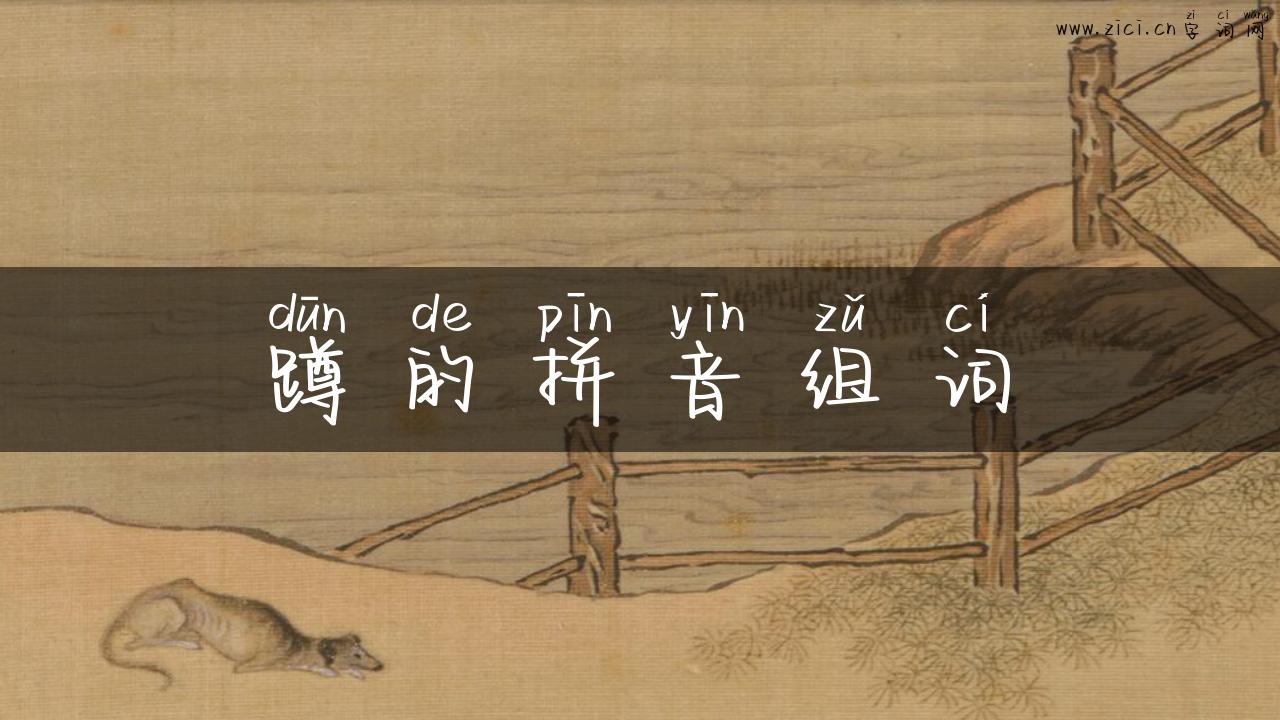 zì cí wǎng
www.zici.cn 字 词 网
dūn de pīn yīn zǔ cí
蹲 的 拼 音 组 词